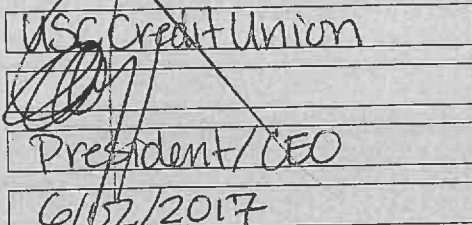 USC Credit Union
President/CEO
/2017